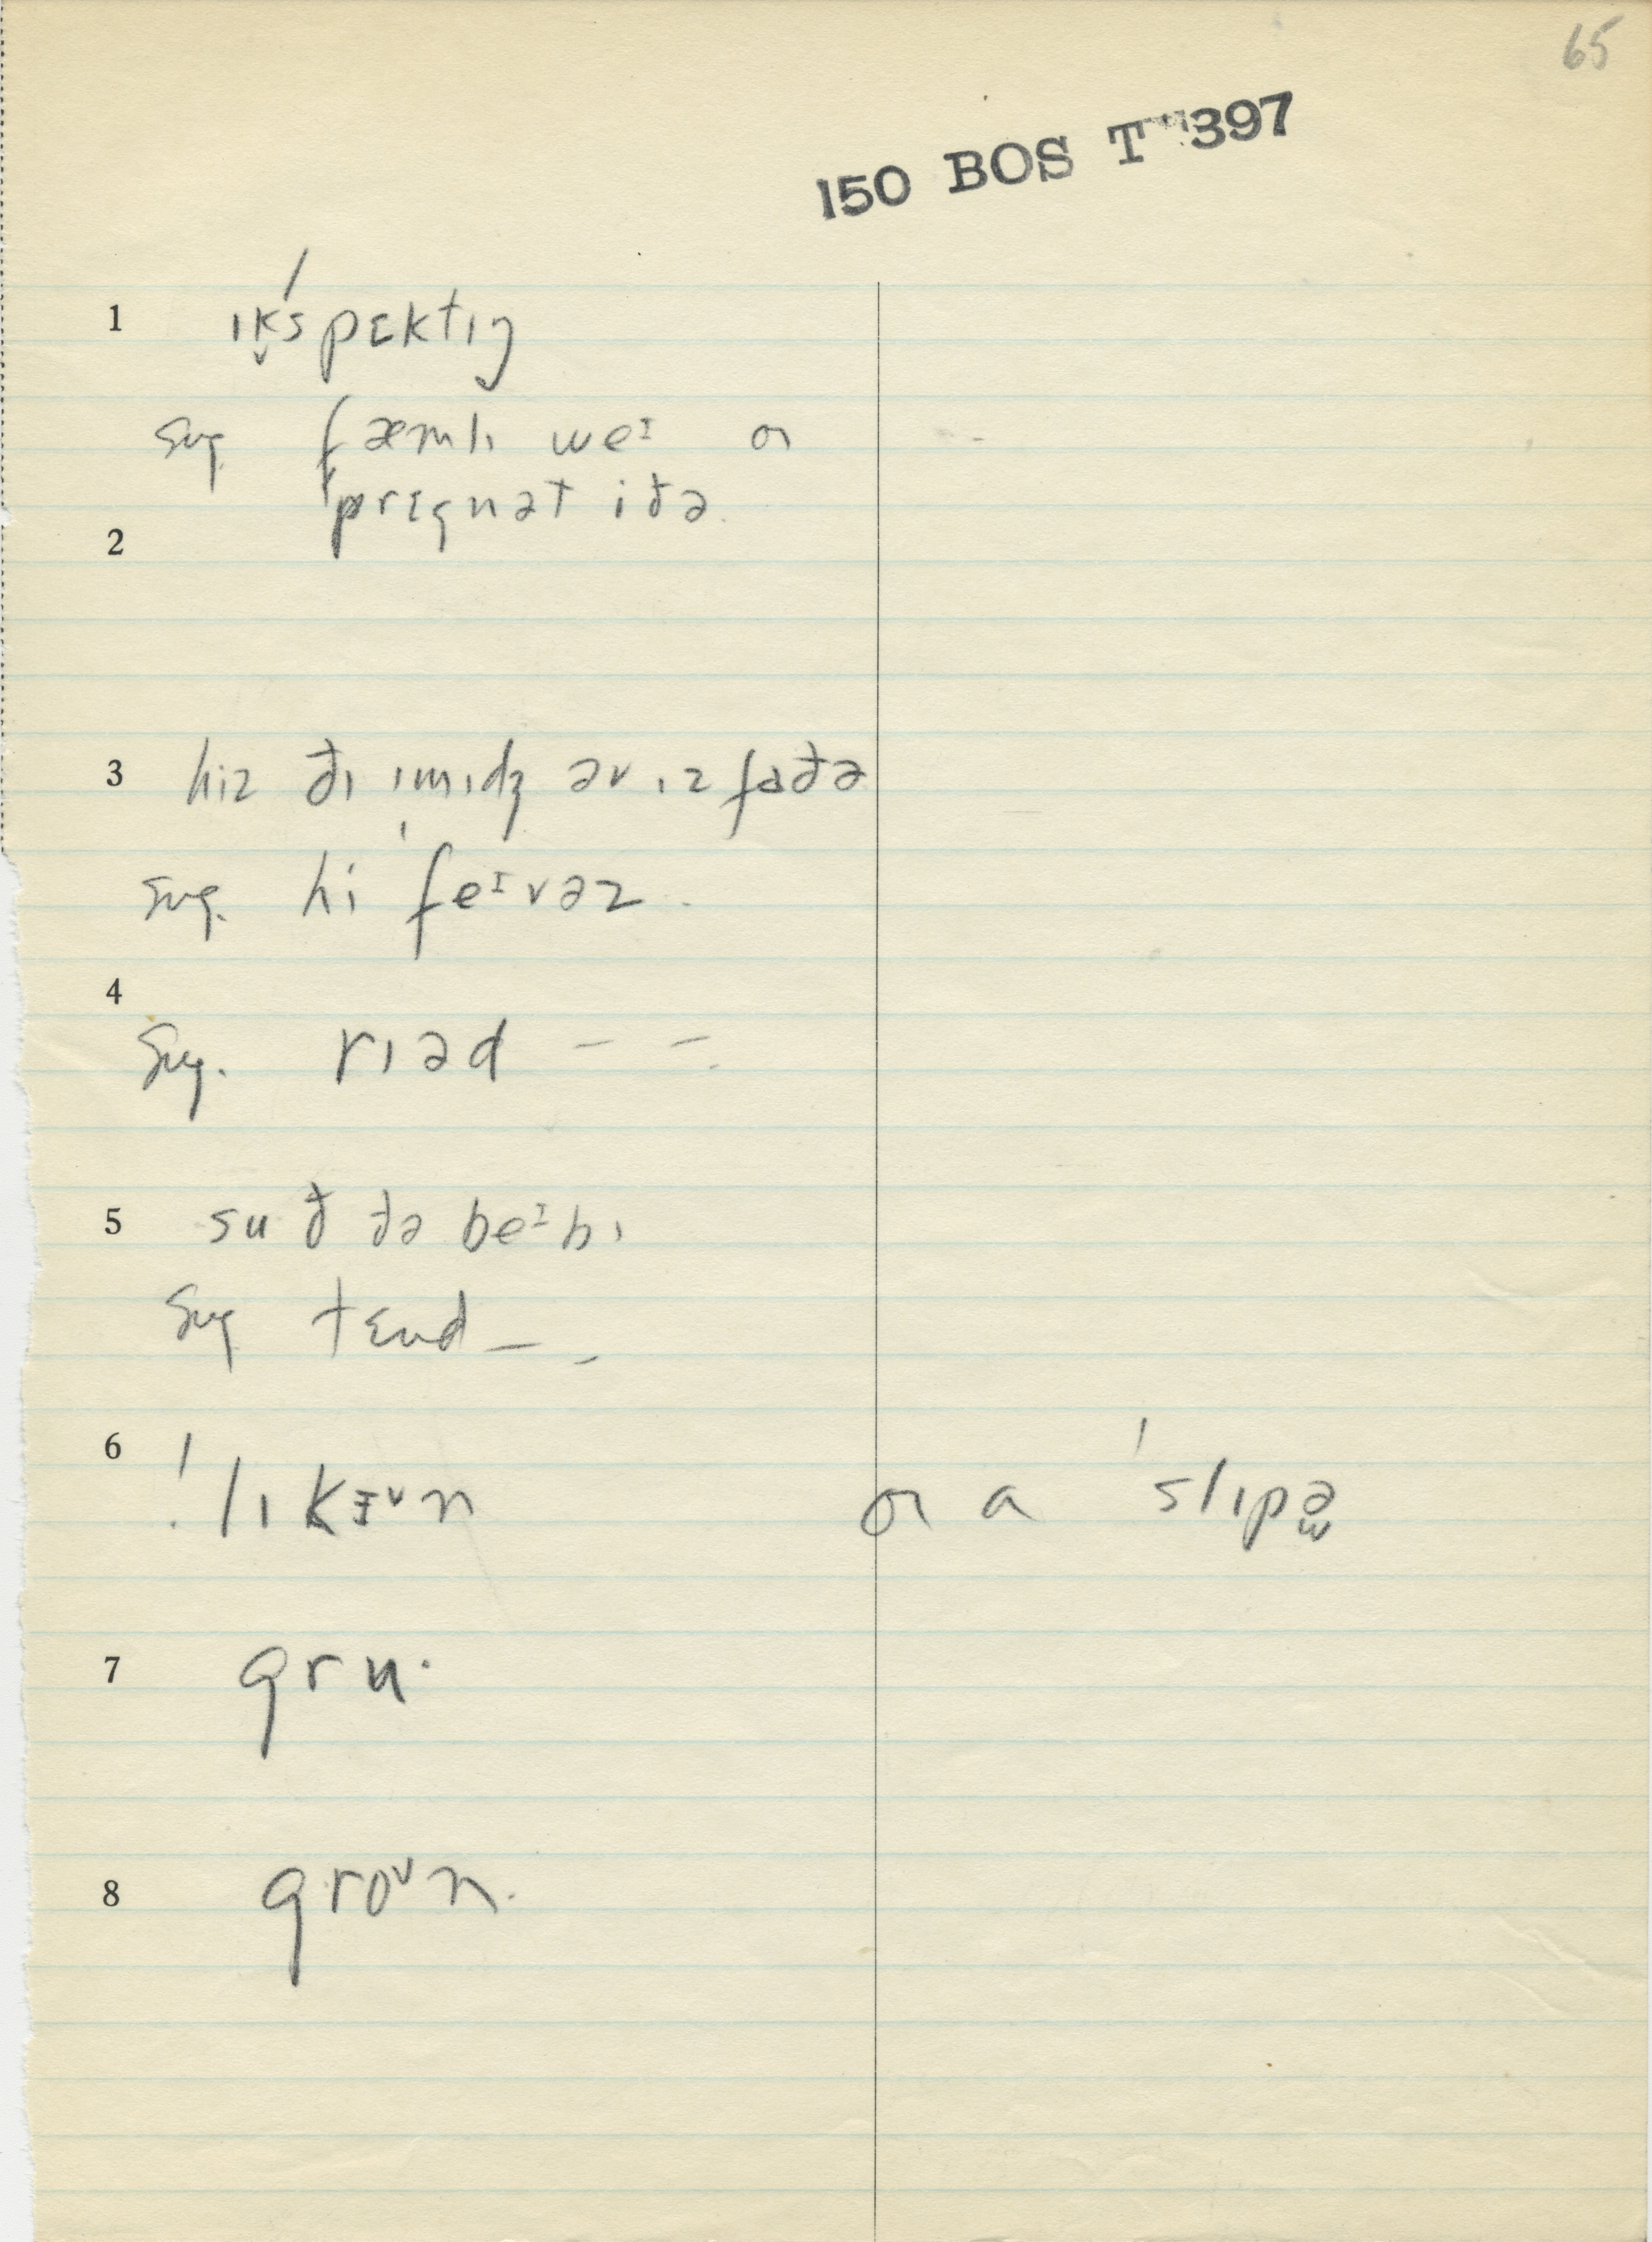 65
150 BOS T 397
1 ɪk̬ˈspɛktɪŋ
sug. fæmlɪ weᶦ or
ˈprɛgnət iðə
2
3 hiz ðɪ ˈɪmɪdʒ əv ɪz faðə
sug. hi feᶦvəz.
4
sug. rɪəd – –.
5 suð ðə beᶦbɪ
sug tɛnd – –
6 ! lɪkɪᵛn or a ˈslɪpə
7 gru·
8 groᶹn.